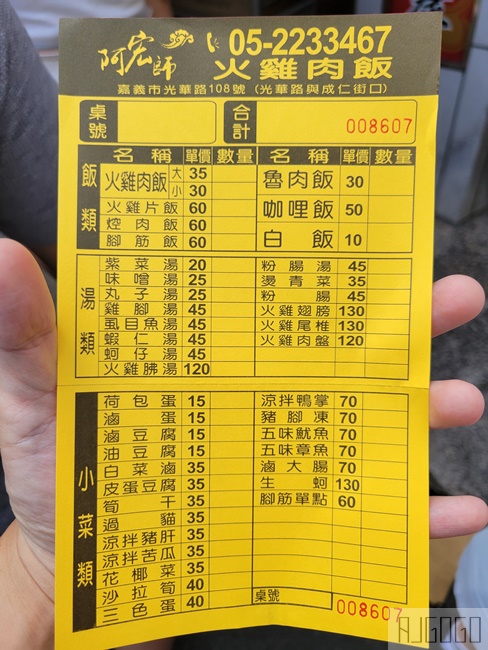 阿宏師 05-2233467
火雞肉飯
嘉義市光華路108號 (光華路與成仁街口)
桌號 合計 008607
飯類
名稱 單價 數量 名稱 單價 數量
火雞肉飯 大 35 魯肉飯 30
小 30
火雞片飯 60 咖哩飯 50
焢肉飯 60 白飯 10
腳筋飯 60
湯類
紫菜湯 20 粉腸湯 45
味噌湯 25 燙青菜 35
丸子湯 25 粉腸 45
雞腳湯 45 火雞翅膀 130
虱目魚湯 45 火雞尾椎 130
蝦仁湯 45 火雞肉盤 120
蚵仔湯 45
火雞胇湯 120
小菜類
荷包蛋 15 涼拌鴨掌 70
滷蛋 15 豬腳凍 70
滷豆腐 15 五味魷魚 70
油豆腐 15 五味章魚 70
白菜滷 35 滷大腸 70
皮蛋豆腐 35 生蚵 130
筍干 35 腳筋單點 60
過貓 35
涼拌豬肝 35
涼拌苦瓜 35
花椰菜 35
沙拉筍 40
三色蛋 40 桌號 008607
AJGOGO